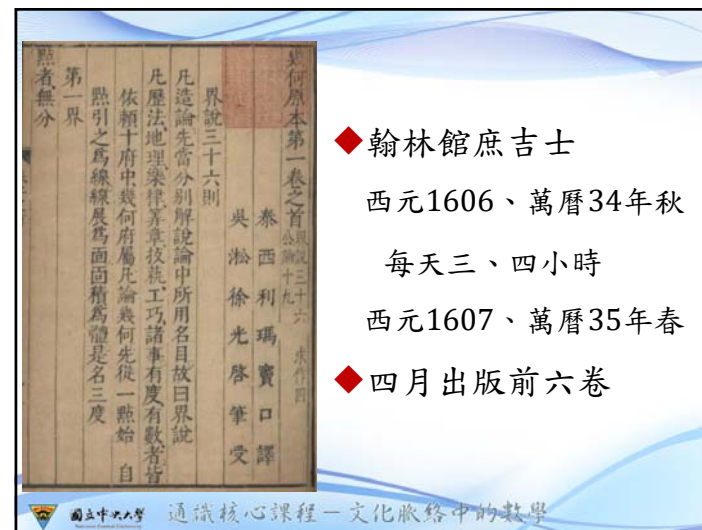 幾何原本第一卷之首 界說三十六 公論十九 求作四
泰西利瑪竇口譯
吳淞徐光啓筆受
界說三十六則
凡造論先當分別解說論中所用名目故曰界說
凡歷法地理樂律筭章技藝工巧諸事有度有數者皆
依頼十府中幾何府屬凡論幾何先從一點始自
點引之爲線線展爲面面積爲體是名三度
第一界
點者無分
翰林館庶吉士
西元1606、萬曆34年秋
每天三、四小時
西元1607、萬曆35年春
四月出版前六卷
國立中央大學
National Central University
通識核心課程－文化脈絡中的數學